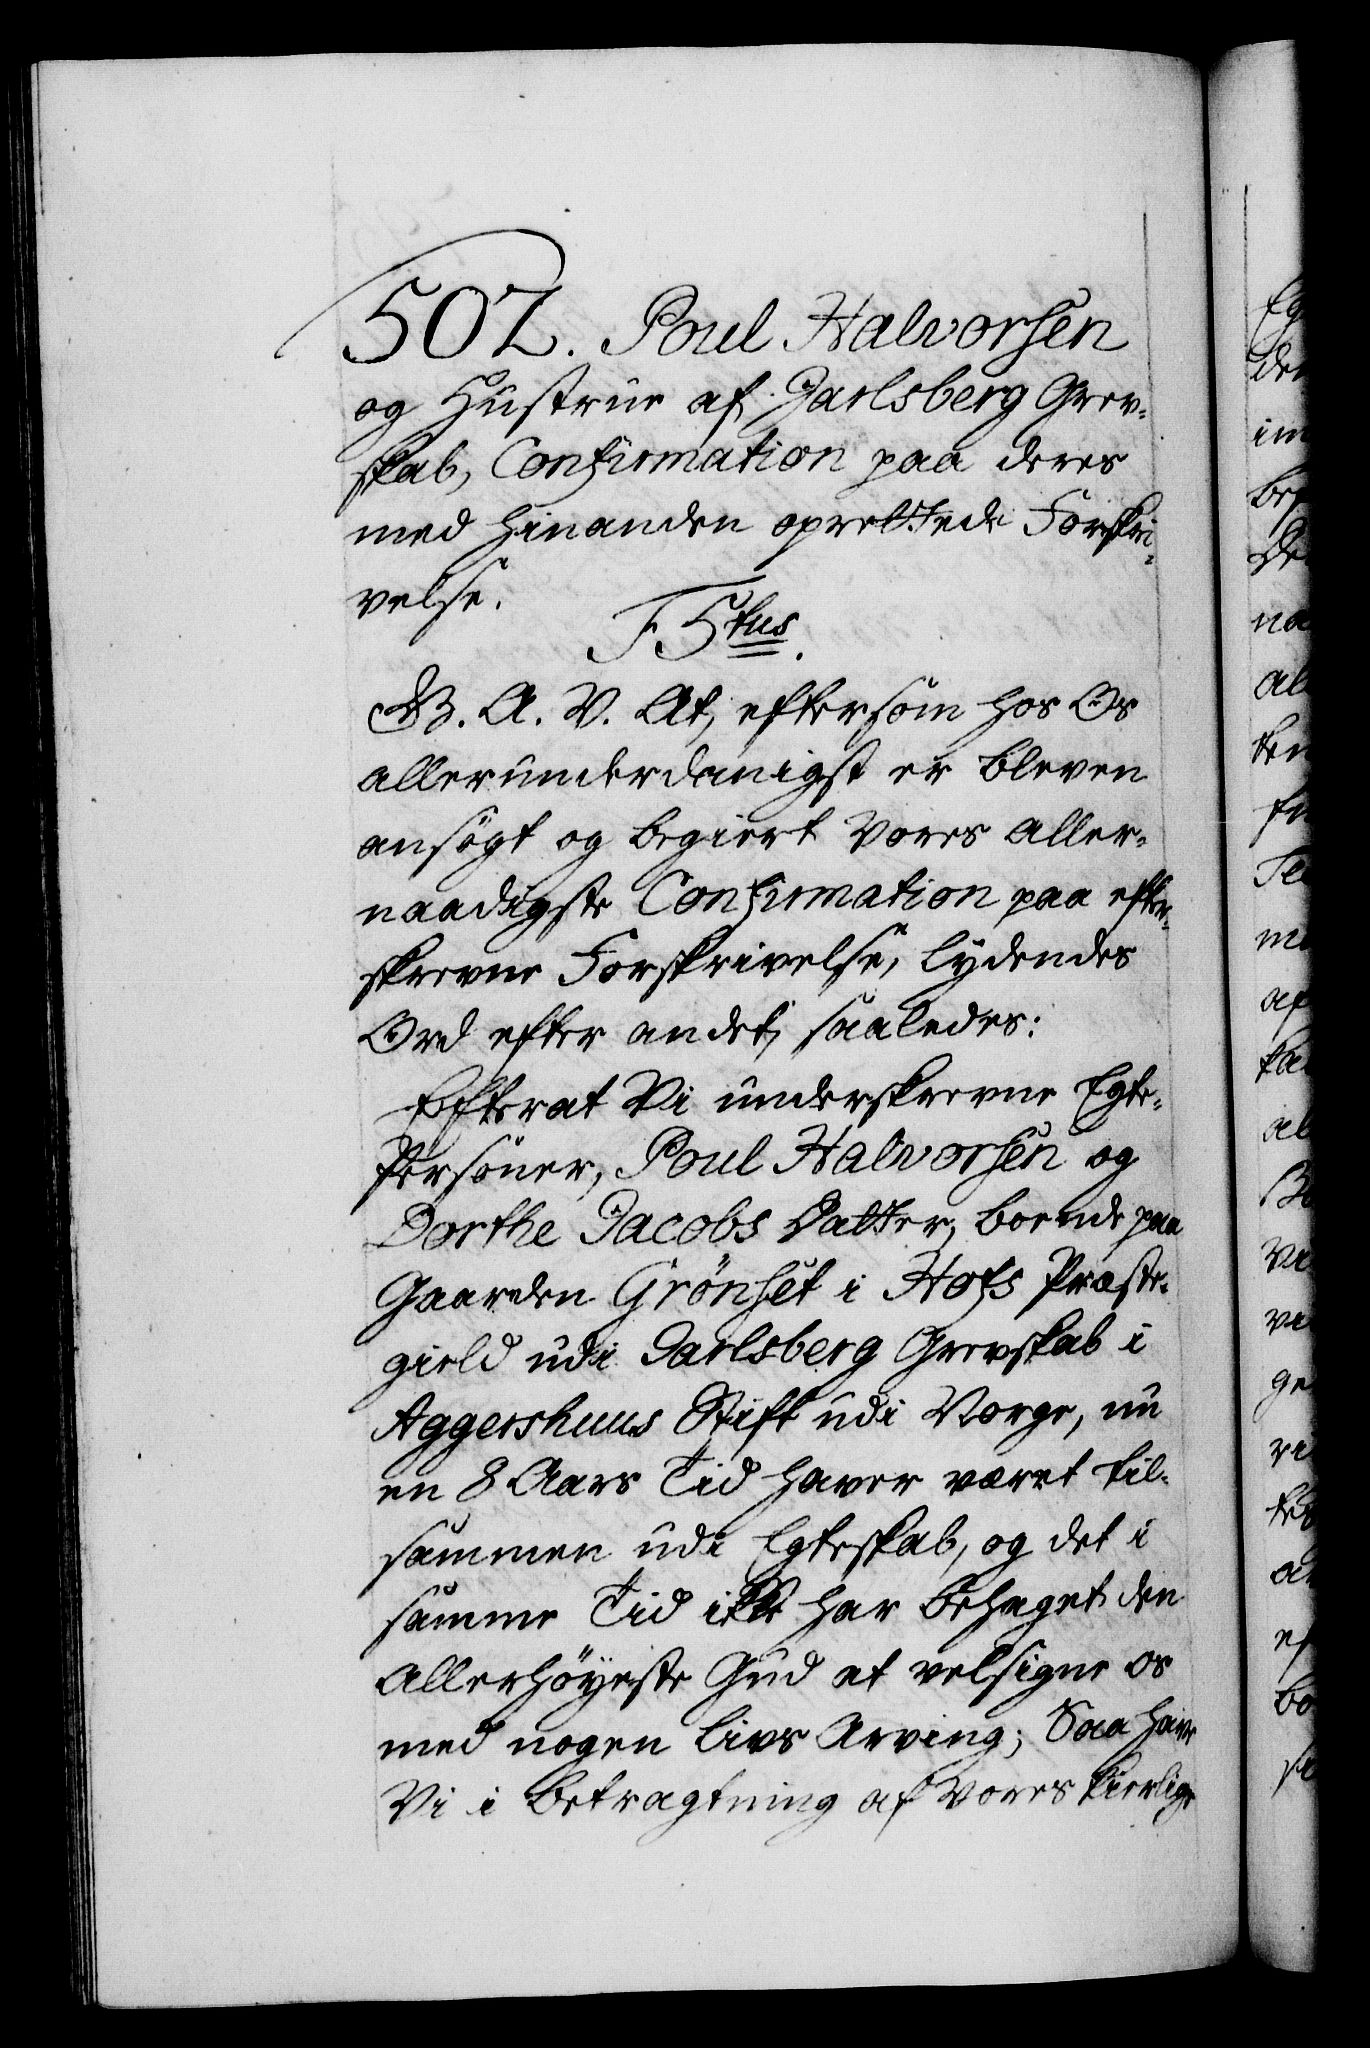 507. Poul Halvorsen
og Hustrue af Jarlsberg Grev-
skab, Confirmation paa deres
med hinanden oprettede Forskri-
velse.
F 5tus.
G. A. V. At, eftersom hos Os
allerunderdanigst er bleven
ansøgt og begiert Vores aller-
naadigste Confirmation paa efter-
skrevne Forskrivelse, lydendes
Ord efter andet, saaledes:
Efterat Vi underskrevne Egte-
Personer, Poul Halvorsen og
Dorthe Jacobs Datter, boende paa
Gaarden Grönset i Hofs Præste-
gield udi Jarlsberg Grevskab i
Aggershuus Stift udi Norge, nu
en 8 Aars Tid haver været til-
sammen udi Egteskab, og det i
samme Tid ikke har behaget den
Allerhöyeste Gud at velsigne os
med nogen Livs Arving; Saa have
Vi i betragtning af vores kierlige